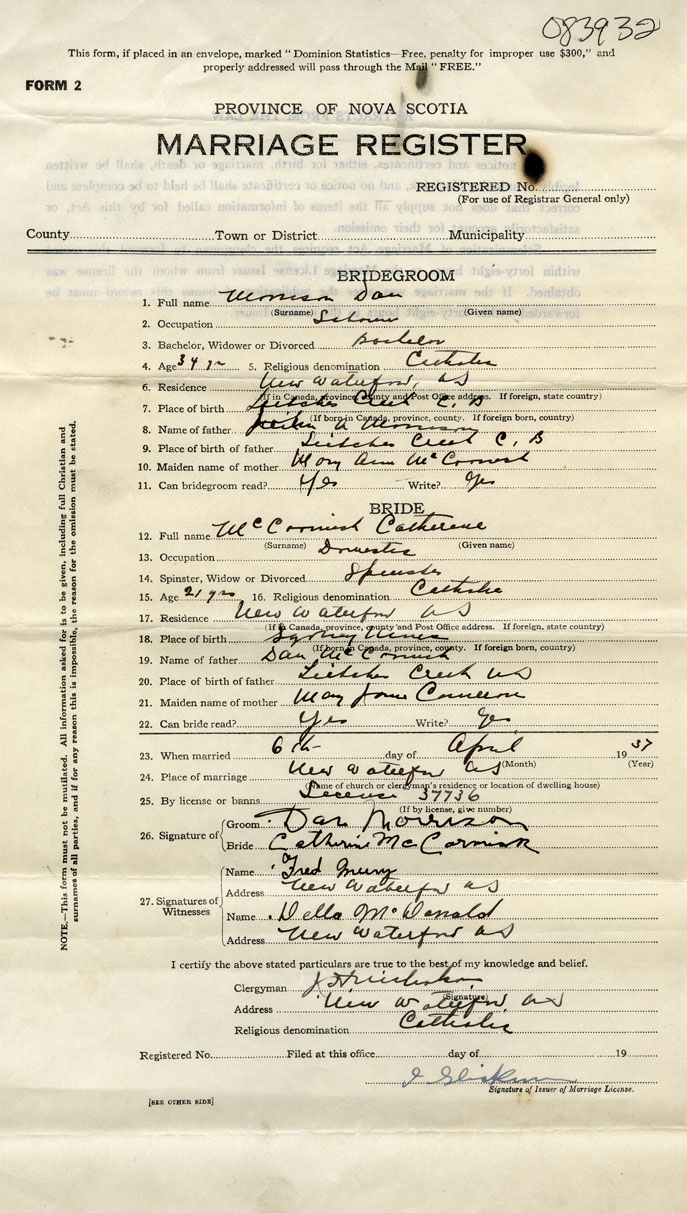 083932
This form, if placed in an envelope, marked "Dominion Statistics—Free, penalty for improper use $300," and
properly addressed will pass through the Mail "FREE."
FORM 2
PROVINCE OF NOVA SCOTIA
MARRIAGE REGISTER
REGISTERED No.
(For use of Registrar General only)
County Town or District Municipality
BRIDEGROOM
1. Full name Morrison Dan
(Surname) (Given name)
2. Occupation
3. Bachelor, Widower or Divorced Bachelor
4. Age 34 yr 5. Religious denomination Catholic
6. Residence New Waterford, NS
(If in Canada, province, county and Post Office address. If foreign, state country)
7. Place of birth Leitches Creek C. B
(If born in Canada, province, county. If foreign born, country)
8. Name of father Morrison
9. Place of birth of father Leitches Creek C, B
10. Maiden name of mother Mary Ann McCormick
11. Can bridegroom read? Yes Write? Yes
BRIDE
12. Full name McCormick Catherene
(Surname) (Given name)
13. Occupation Domestic
14. Spinster, Widow or Divorced Spinster
15. Age 21 yrs 16. Religious denomination Catholic
17. Residence New Waterford NS
(If in Canada, province, county and Post Office address. If foreign, state country)
18. Place of birth Sydney Mines
(If born in Canada, province, county. If foreign born, country)
19. Name of father Dan McCormick
20. Place of birth of father Leitches Creek NS
21. Maiden name of mother Mary Jane Cameron
22. Can bride read? Yes Write? Yes
23. When married 6th day of April 1937
(Month) (Year)
24. Place of marriage New Waterford NS
(Name of church or clergyman's residence or location of dwelling house)
25. By license or banns License 37736
(If by license, give number)
26. Signature of Groom Dan Morrison
Bride Catherine McCormick
27. Signatures of Witnesses Name Fred
Address New Waterford NS
Name Della McDonald
Address New Waterford NS
I certify the above stated particulars are true to the best of my knowledge and belief.
Clergyman
(Signature)
Address New Waterford NS
Religious denomination Catholic
Registered No. Filed at this office day of 19
Signature of Issuer of Marriage License.
[SEE OTHER SIDE]
NOTE.—This form must not be mutilated. All information asked for is to be given, including full Christian and
surnames of all parties, and if for any reason this is impossible, the reason for the omission must be stated.